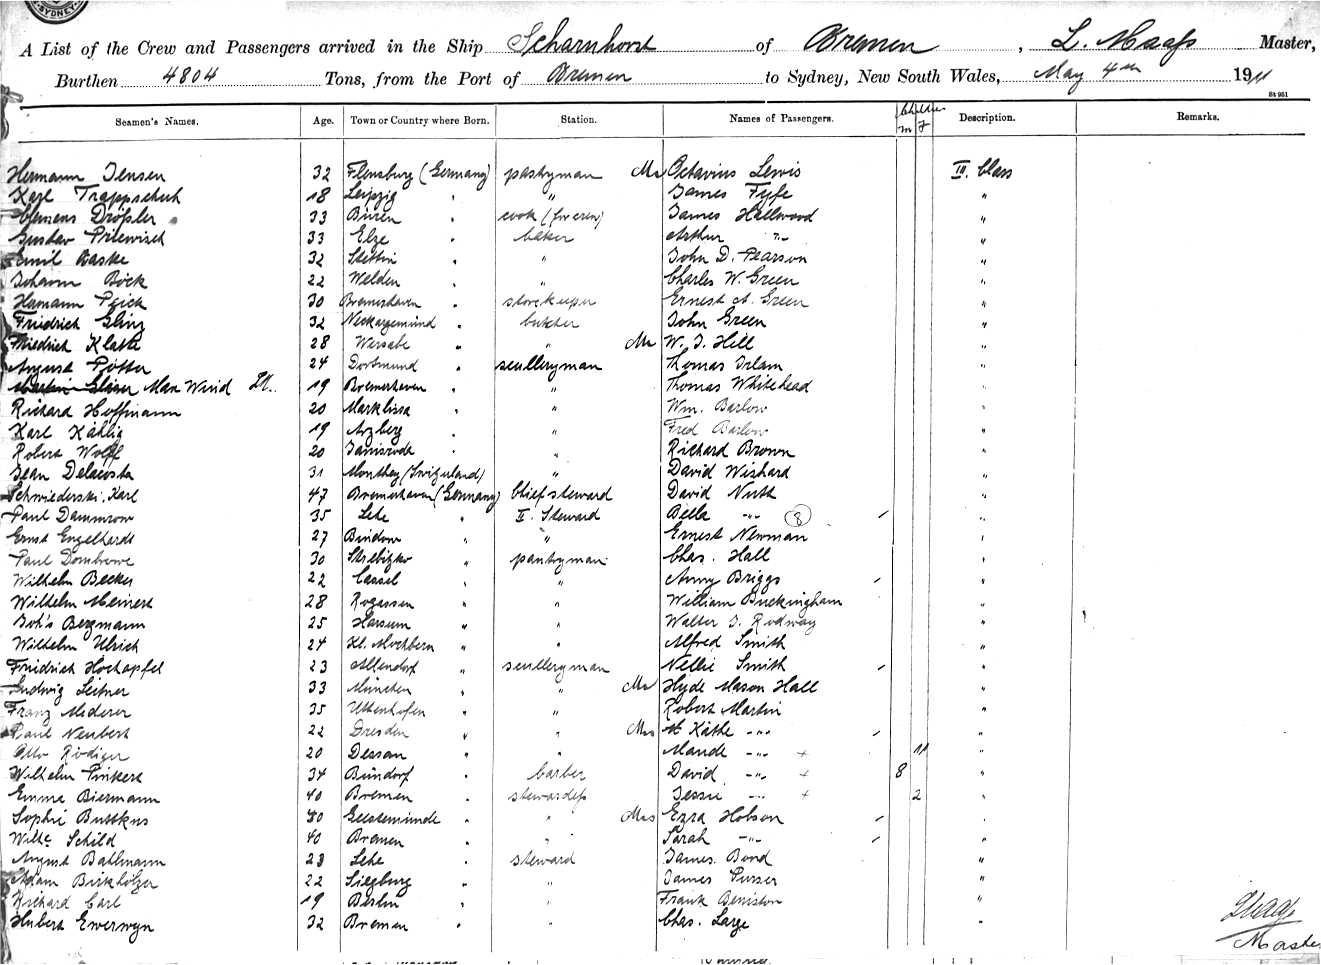 SYDNEY
A List of the Crew and Passengers arrived in the Ship Scharnhorst of Bremen, L. Maass Master,
Burthen 4804 Tons, from the Port of Bremen to Sydney, New South Wales, May 4th 1911
St 951
Seamen's Names. Age. Town or Country where Born. Station. Names of Passengers. Children m F Description. Remarks.
Hermann Jensen 32 Flensburg (Germany) pastryman Mr Octavius Lewis III. Class
Karl Trappschuh 18 Leipzig " " James Fyfe "
Clemens Droßler 33 Büren " cook James Hallwood "
Gustav Priewisch 33 Elze " baker Arthur -"- "
Emil Baske 32 Stettin " " John D. Pearson "
Johann Böck 22 Welden " " Charles W. Green "
Hermann Peick 30 Bremerhaven " storekeeper Ernest A. Green "
Friedrich Gling 32 Neckargemünd " butcher John Green "
Friedrich Klatte 28 Wersabe " " Mr W. J. Hill "
August Pötter 24 Dortmund " sculleryman Thomas Irlam "
Max Wend 19 Bremerhaven " " Thomas Whitehead "
Richard Hoffmann 20 Marklissa " " Wm. Barlow "
Karl Kählig 19 Arzberg " " Fred Barlow "
Robert Wolff 20 " " Richard Brown "
Jean Delacosta 31 Monthey (Switzerland) " David Wishard "
Schwiederski, Karl 47 Bremerhaven (Germany) Chief steward David Nuth "
Paul Dammrow 35 Lehe " II. Steward Bella -"- (8) / "
Ernst Engelhardt 27 Bindow " " Ernest Newman "
Paul Dombrowe 30 " pantryman Chas. Hall "
Wilhelm Becker 22 Cassel " " Anny Briggs / "
Wilhelm Meinert 28 Rogassen " " William Buckingham "
Joh's Bergmann 25 Harsum " " Walter J. Rodway "
Wilhelm Ulrich 24 Kl. Mochbern " " Alfred Smith "
Friedrich Hochapfel 23 Allendorf " sculleryman Nellie Smith / "
Ludwig Leitner 33 München " " Mr Hyde Mason Hall "
Franz Mederer 35 Uttenhofen " " Robert Martin "
Paul Neubert 22 Dresden " " Mrs M Käthe -"- / "
Otto Rödiger 20 Dessau " " Maude -"- + 11 "
Wilhelm Pinkert 34 Bündorf " barber David -"- + 8 "
Emma Biermann 40 Bremen " stewardess Jessie -"- + 2 "
Sophie Buttkus 30 Geestemünde " " Mrs Ezra Hobson / "
Wilhe Schild 40 Bremen " " Sarah -"- / "
August Bahlmann 23 Lehe " steward James Bond "
Adam Birkhölzer 22 Siegburg " " James Purser "
Richard Carl 19 Berlin " " Frank Beniston "
Hubert Ewerwyn 32 Bremen " " Chas. Large "
LMaass
Master